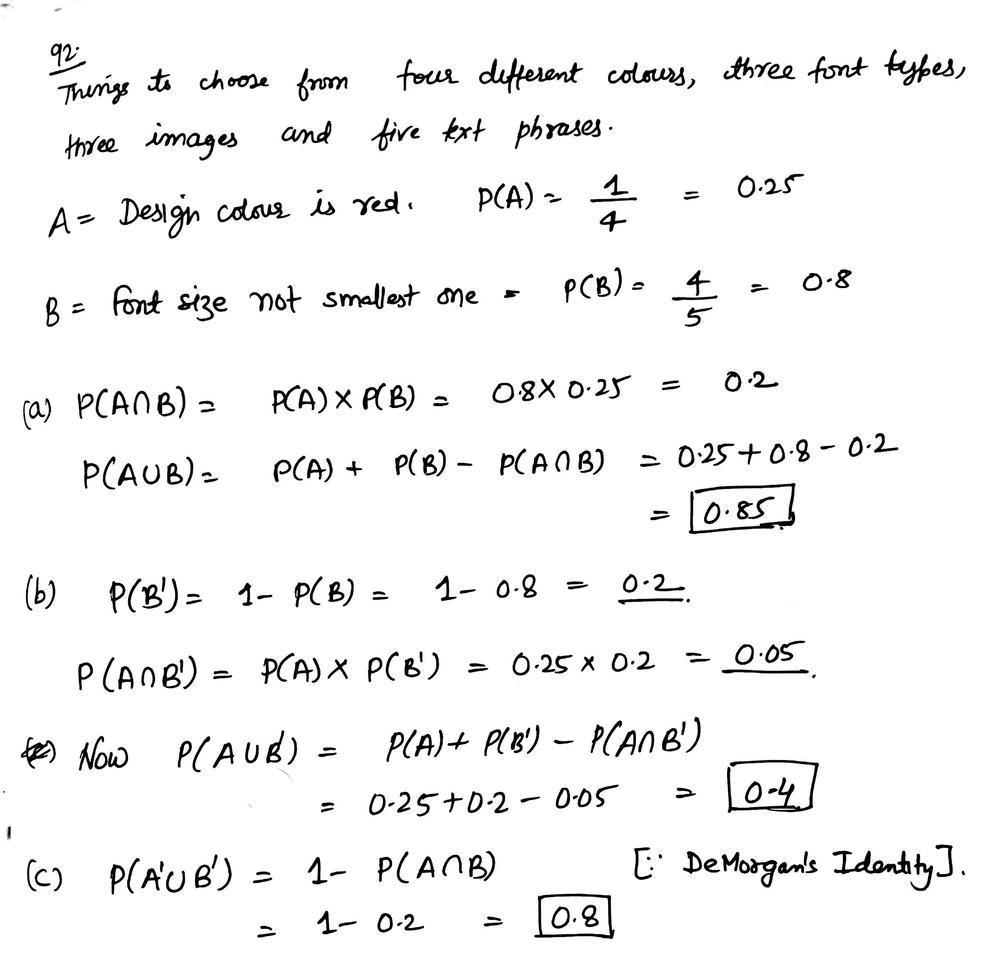 92.
Things to choose from four different colours, three font types,
three images and five text phrases.
A = Design colour is red. P(A) = 1/4 = 0.25
B = font size not smallest one = P(B) = 4/5 = 0.8
(a) P(A∩B) = P(A) X P(B) = 0.8 X 0.25 = 0.2
P(A∪B) = P(A) + P(B) - P(A∩B) = 0.25 + 0.8 - 0.2
= 0.85
(b) P(B') = 1 - P(B) = 1 - 0.8 = 0.2.
P(A∩B') = P(A) X P(B') = 0.25 x 0.2 = 0.05.
Now P(A∪B') = P(A) + P(B') - P(A∩B')
= 0.25 + 0.2 - 0.05 = 0.4
(c) P(A'∪B') = 1 - P(A∩B) [∵ DeMorgan's Identity].
= 1 - 0.2 = 0.8